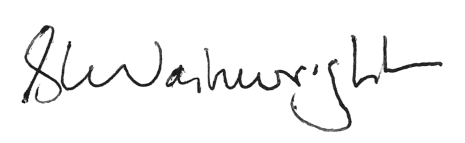 S Wainwright